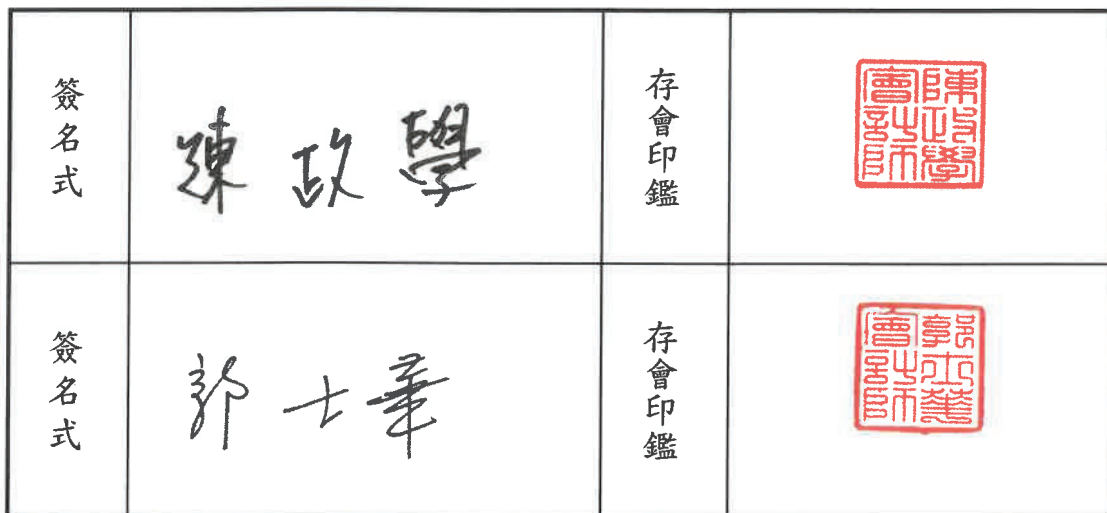 簽名式
陳政學
存會印鑑
陳政學會計師
簽名式
郭士華
存會印鑑
郭士華會計師